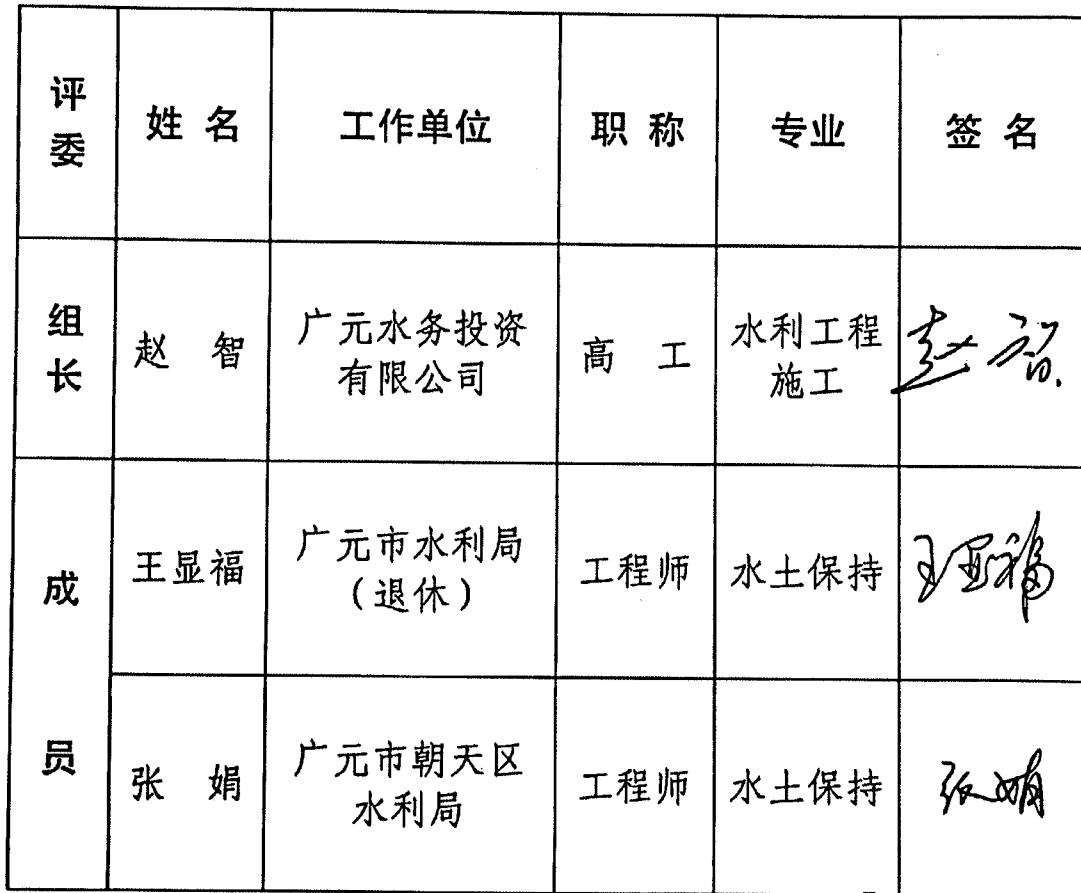 评委 姓 名 工作单位 职 称 专业 签 名
组长 赵 智 广元水务投资有限公司 高 工 水利工程施工 赵智
成员 王显福 广元市水利局（退休） 工程师 水土保持 王显福
张 娟 广元市朝天区水利局 工程师 水土保持 张娟